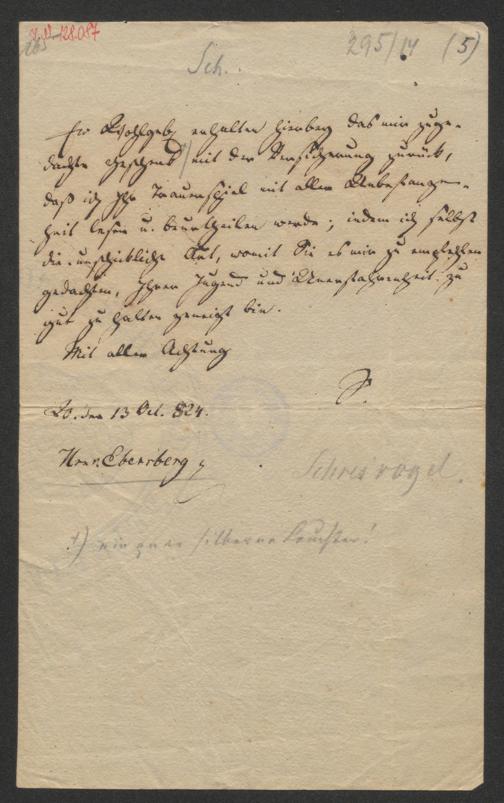 I.N. 128.087
165
295/14 (5)
Sch.
Ew Wohlgeb. erhalten hierbey das mir zuge-
dachte Geschenk †) mit der Versicherung zurück,
daß ich Ihr Trauerspiel mit aller Unbefangen-
heit lesen u. beurtheilen werde; indem ich selbst
die unschickliche Art, womit Sie es mir zu empfehlen
gedachten, Ihrer Jugend und Unerfahrenheit zu
gut zu halten geneigt bin.
Mit aller Achtung
S.
den 13 Oct. 824.
Hrn v. Ebersberg
Schreivogel.
†) ein paar silberne Leuchter!